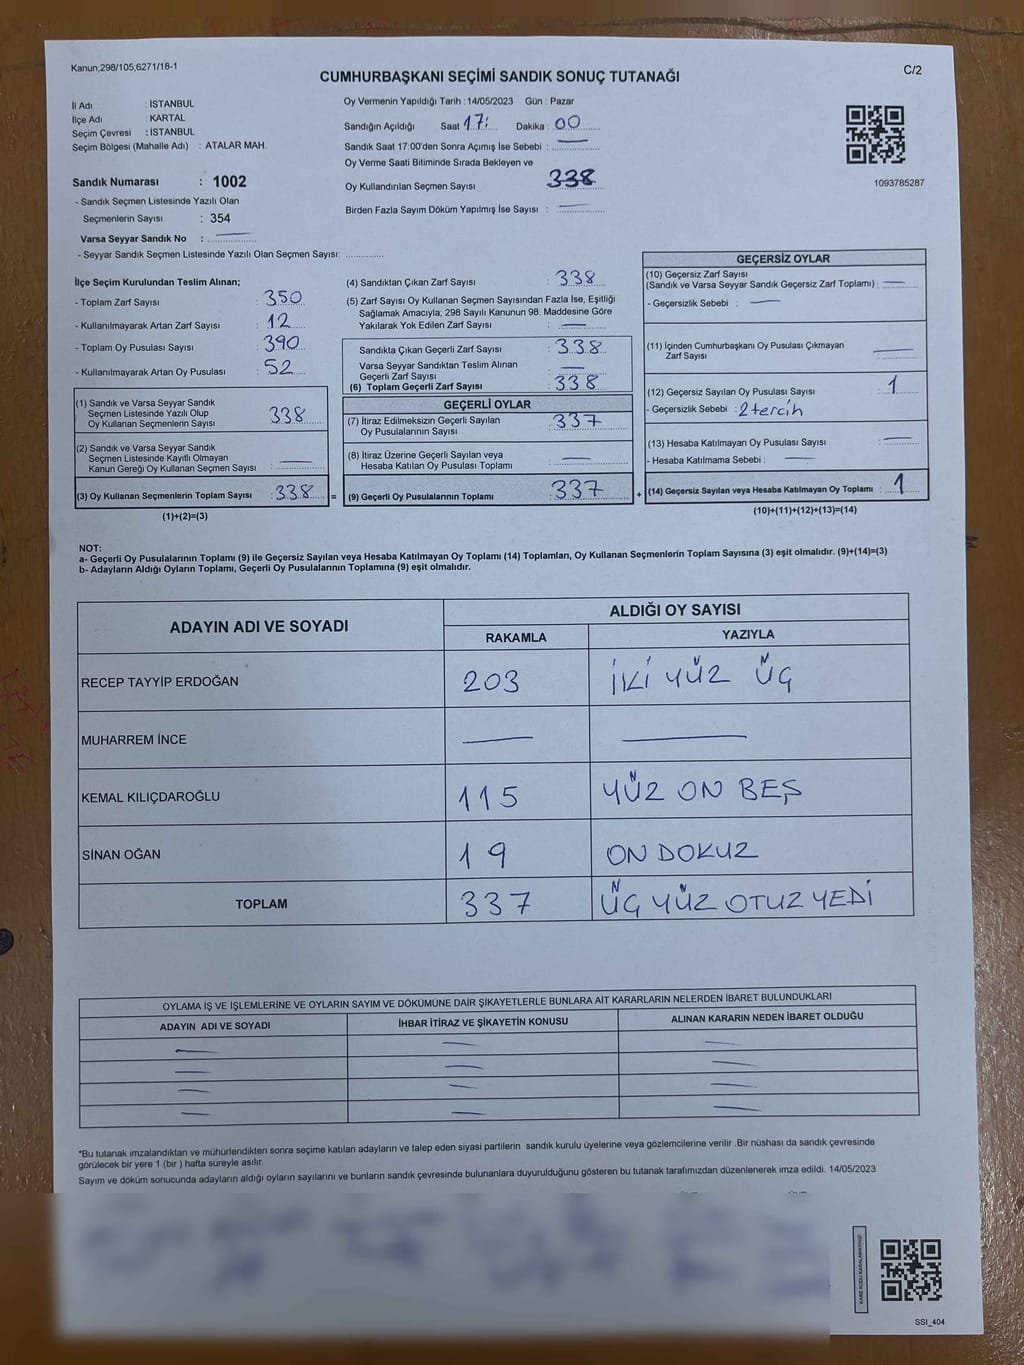 Kanun;298/105;6271/18-1
C/2
CUMHURBAŞKANI SEÇİMİ SANDIK SONUÇ TUTANAĞI
İl Adı : İSTANBUL
İlçe Adı : KARTAL
Seçim Çevresi : İSTANBUL
Seçim Bölgesi (Mahalle Adı) : ATALAR MAH.
Sandık Numarası : 1002
- Sandık Seçmen Listesinde Yazılı Olan
Seçmenlerin Sayısı : 354
Varsa Seyyar Sandık No :
- Seyyar Sandık Seçmen Listesinde Yazılı Olan Seçmen Sayısı:
Oy Vermenin Yapıldığı Tarih : 14/05/2023 Gün : Pazar
Sandığın Açıldığı Saat 17: Dakika : 00
Sandık Saat 17:00'den Sonra Açımış İse Sebebi : —
Oy Verme Saati Bitiminde Sırada Bekleyen ve
Oy Kullandırılan Seçmen Sayısı 338
Birden Fazla Sayım Döküm Yapılmış İse Sayısı : —
1093785287
İlçe Seçim Kurulundan Teslim Alınan;
- Toplam Zarf Sayısı : 350
- Kullanılmayarak Artan Zarf Sayısı : 12
- Toplam Oy Pusulası Sayısı : 390
- Kullanılmayarak Artan Oy Pusulası : 52
(1) Sandık ve Varsa Seyyar Sandık
Seçmen Listesinde Yazılı Olup
Oy Kullanan Seçmenlerin Sayısı : 338
(2) Sandık ve Varsa Seyyar Sandık
Seçmen Listesinde Kayıtlı Olmayan
Kanun Gereği Oy Kullanan Seçmen Sayısı : —
(3) Oy Kullanan Seçmenlerin Toplam Sayısı : 338
(1)+(2)=(3)
=
(4) Sandıktan Çıkan Zarf Sayısı : 338
(5) Zarf Sayısı Oy Kullanan Seçmen Sayısından Fazla İse, Eşitliği
Sağlamak Amacıyla; 298 Sayılı Kanunun 98. Maddesine Göre
Yakılarak Yok Edilen Zarf Sayısı : —
Sandıkta Çıkan Geçerli Zarf Sayısı : 338
Varsa Seyyar Sandıktan Teslim Alınan
Geçerli Zarf Sayısı : —
(6) Toplam Geçerli Zarf Sayısı : 338
GEÇERLİ OYLAR
(7) İtiraz Edilmeksizin Geçerli Sayılan
Oy Pusulalarının Sayısı : 337
(8) İtiraz Üzerine Geçerli Sayılan veya
Hesaba Katılan Oy Pusulası Toplamı : —
(9) Geçerli Oy Pusulalarının Toplamı : 337
+
GEÇERSİZ OYLAR
(10) Geçersiz Zarf Sayısı
(Sandık ve Varsa Seyyar Sandık Geçersiz Zarf Toplamı) : —
- Geçersizlik Sebebi : —
(11) İçinden Cumhurbaşkanı Oy Pusulası Çıkmayan
Zarf Sayısı : —
(12) Geçersiz Sayılan Oy Pusulası Sayısı : 1
- Geçersizlik Sebebi : 2 tercih
(13) Hesaba Katılmayan Oy Pusulası Sayısı : —
- Hesaba Katılmama Sebebi : —
(14) Geçersiz Sayılan veya Hesaba Katılmayan Oy Toplamı : 1
(10)+(11)+(12)+(13)=(14)
NOT:
a- Geçerli Oy Pusulalarının Toplamı (9) ile Geçersiz Sayılan veya Hesaba Katılmayan Oy Toplamı (14) Toplamları, Oy Kullanan Seçmenlerin Toplam Sayısına (3) eşit olmalıdır. (9)+(14)=(3)
b- Adayların Aldığı Oyların Toplamı, Geçerli Oy Pusulalarının Toplamına (9) eşit olmalıdır.
ADAYIN ADI VE SOYADI
ALDIĞI OY SAYISI
RAKAMLA YAZIYLA
RECEP TAYYİP ERDOĞAN 203 İKİ YÜZ ÜÇ
MUHARREM İNCE — —
KEMAL KILIÇDAROĞLU 115 YÜZ ON BEŞ
SİNAN OĞAN 19 ON DOKUZ
TOPLAM 337 ÜÇ YÜZ OTUZ YEDİ
OYLAMA İŞ VE İŞLEMLERİNE VE OYLARIN SAYIM VE DÖKÜMÜNE DAİR ŞİKAYETLERLE BUNLARA AİT KARARLARIN NELERDEN İBARET BULUNDUKLARI
ADAYIN ADI VE SOYADI İHBAR İTİRAZ VE ŞİKAYETİN KONUSU ALINAN KARARIN NEDEN İBARET OLDUĞU
— — —
— — —
— — —
— — —
*Bu tutanak imzalandıktan ve mühürlendikten sonra seçime katılan adayların ve talep eden siyasi partilerin sandık kurulu üyelerine veya gözlemcilerine verilir .Bir nüshası da sandık çevresinde
görülecek bir yere 1 (bir ) hafta süreyle asılır.
Sayım ve döküm sonucunda adayların aldığı oyların sayılarını ve bunların sandık çevresinde bulunanlara duyurulduğunu gösteren bu tutanak tarafımızdan düzenlenerek imza edildi. 14/05/2023
KARE KODU KARALAMAYINIZ!
SSI_404